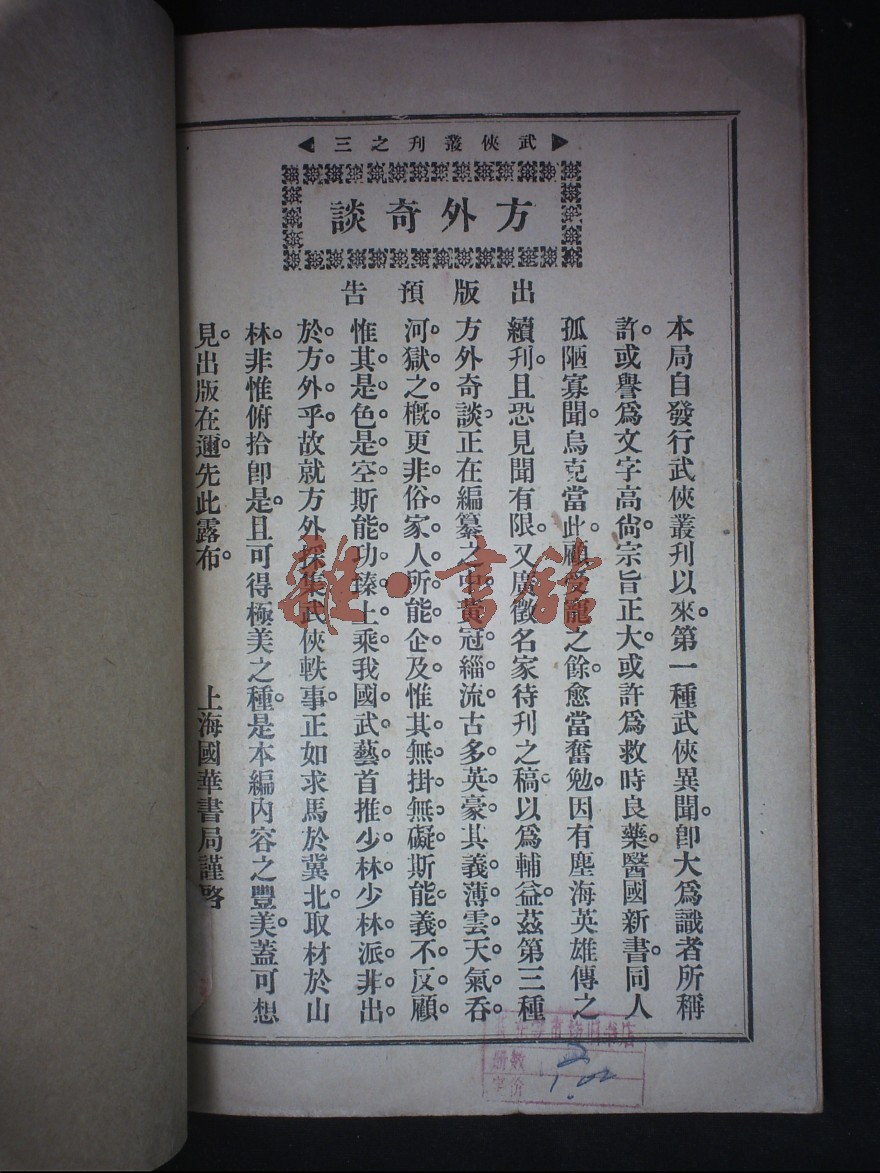 武俠叢刋之三
方外奇談
出版預告
本局自發行武俠叢刊以來。第一種武俠異聞。卽大爲識者所稱
許。或譽爲文字高尙。宗旨正大。或許爲救時良藥。醫國新書。同人
孤陋寡聞。烏克當此。顧受寵之餘。愈當奮勉。因有塵海英雄傳之
續刋。且恐見聞有限。又廣徵名家待刋之稿。以爲輔益。茲第三種
方外奇談。正在編纂之中。黃冠緇流。古多英豪。其義薄雲天。氣吞
河獄之槪。更非俗家人所能企及。惟其無掛無礙。斯能義不反顧。
惟其是色是空。斯能功臻上乘。我國武藝。首推少林。少林派非出
於方外乎。故就方外採集武俠軼事。正如求馬於冀北。取材於山
林。非惟俯拾卽是。且可得極美之種。是本編內容之豐美。蓋可想
見。出版在邇。先此露布。
上海國華書局謹啓
雜·書館
冊數
定价
1.02